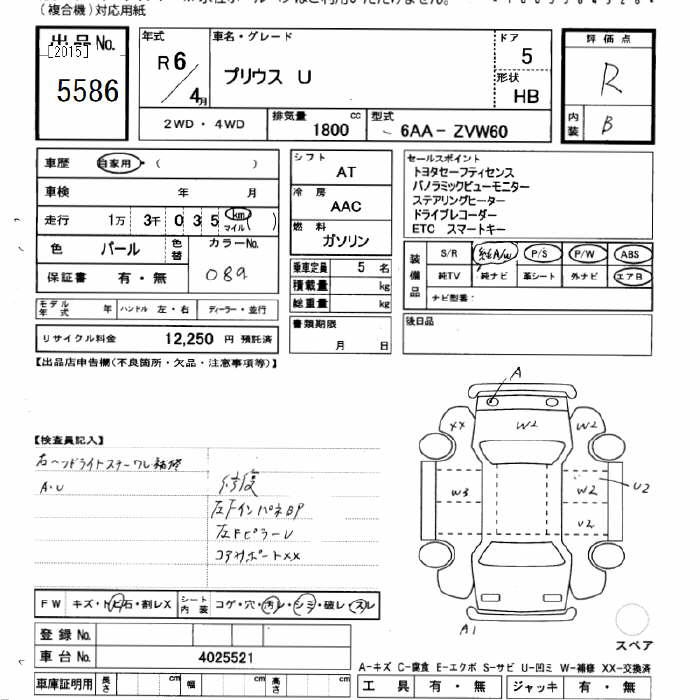 (複合機)対応用紙
出品No.
[2015]
5586
年式
R 6
4 月
車名・グレード
プリウス U
ドア
5
形状
HB
評価点
R
内装
B
2WD・4WD
排気量
1800 cc
型式
6AA-ZVW60
車歴
自家用・( )
車検 年 月
走行 1万 3千 0 3 5 km
マイル( )
色 パール
色替
カラーNo.
089
保証書 有・無
モデル年式 年 ハンドル 左・右 ディーラー・並行
リサイクル料金 12,250 円 預託済
シフト
AT
冷房
AAC
燃料
ガソリン
乗車定員 5 名
積載量 kg
総重量 kg
書類期限
月 日
セールスポイント
トヨタセーフティセンス
パノラミックビューモニター
ステアリングヒーター
ドライブレコーダー
ETC スマートキー
装備品
S/R 純A/w P/S P/W ABS
純TV 純ナビ 革シート 外ナビ エアB
ナビ型番:
後日品
【出品店申告欄(不良箇所・欠品・注意事項等)】
【検査員記入】
右ヘッドライトステーワレ補修
A・U
修復
左FインパネBP
左FピラーU
コアサポートXX
A
XX
W2
W2
W3
W2
U2
U2
A1
スペア
FW キズ・トビ石・割レX
シート内装 コゲ・穴・汚レ・シミ・破レ・スレ
登録No.
車台No. 4025521
車庫証明用 長さ cm 幅 cm 高さ cm
A-キズ C-腐食 E-エクボ S-サビ U-凹ミ W-補修 XX-交換済
工具 有・無 ジャッキ 有・無